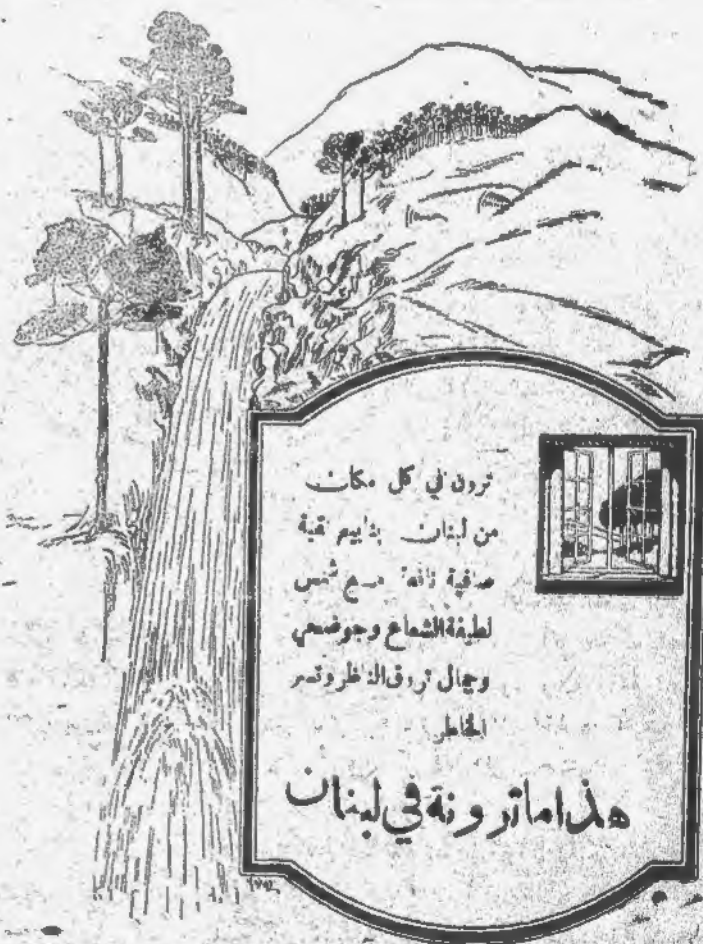 ترون في كل مكان
من لبنان ينابيع نقية
صافية نافعة مع شمس
لطيفة الشعاع وجو صحي
وجمال تروق الناظر وتسر
الخاطر
هذا ما ترونه في لبنان